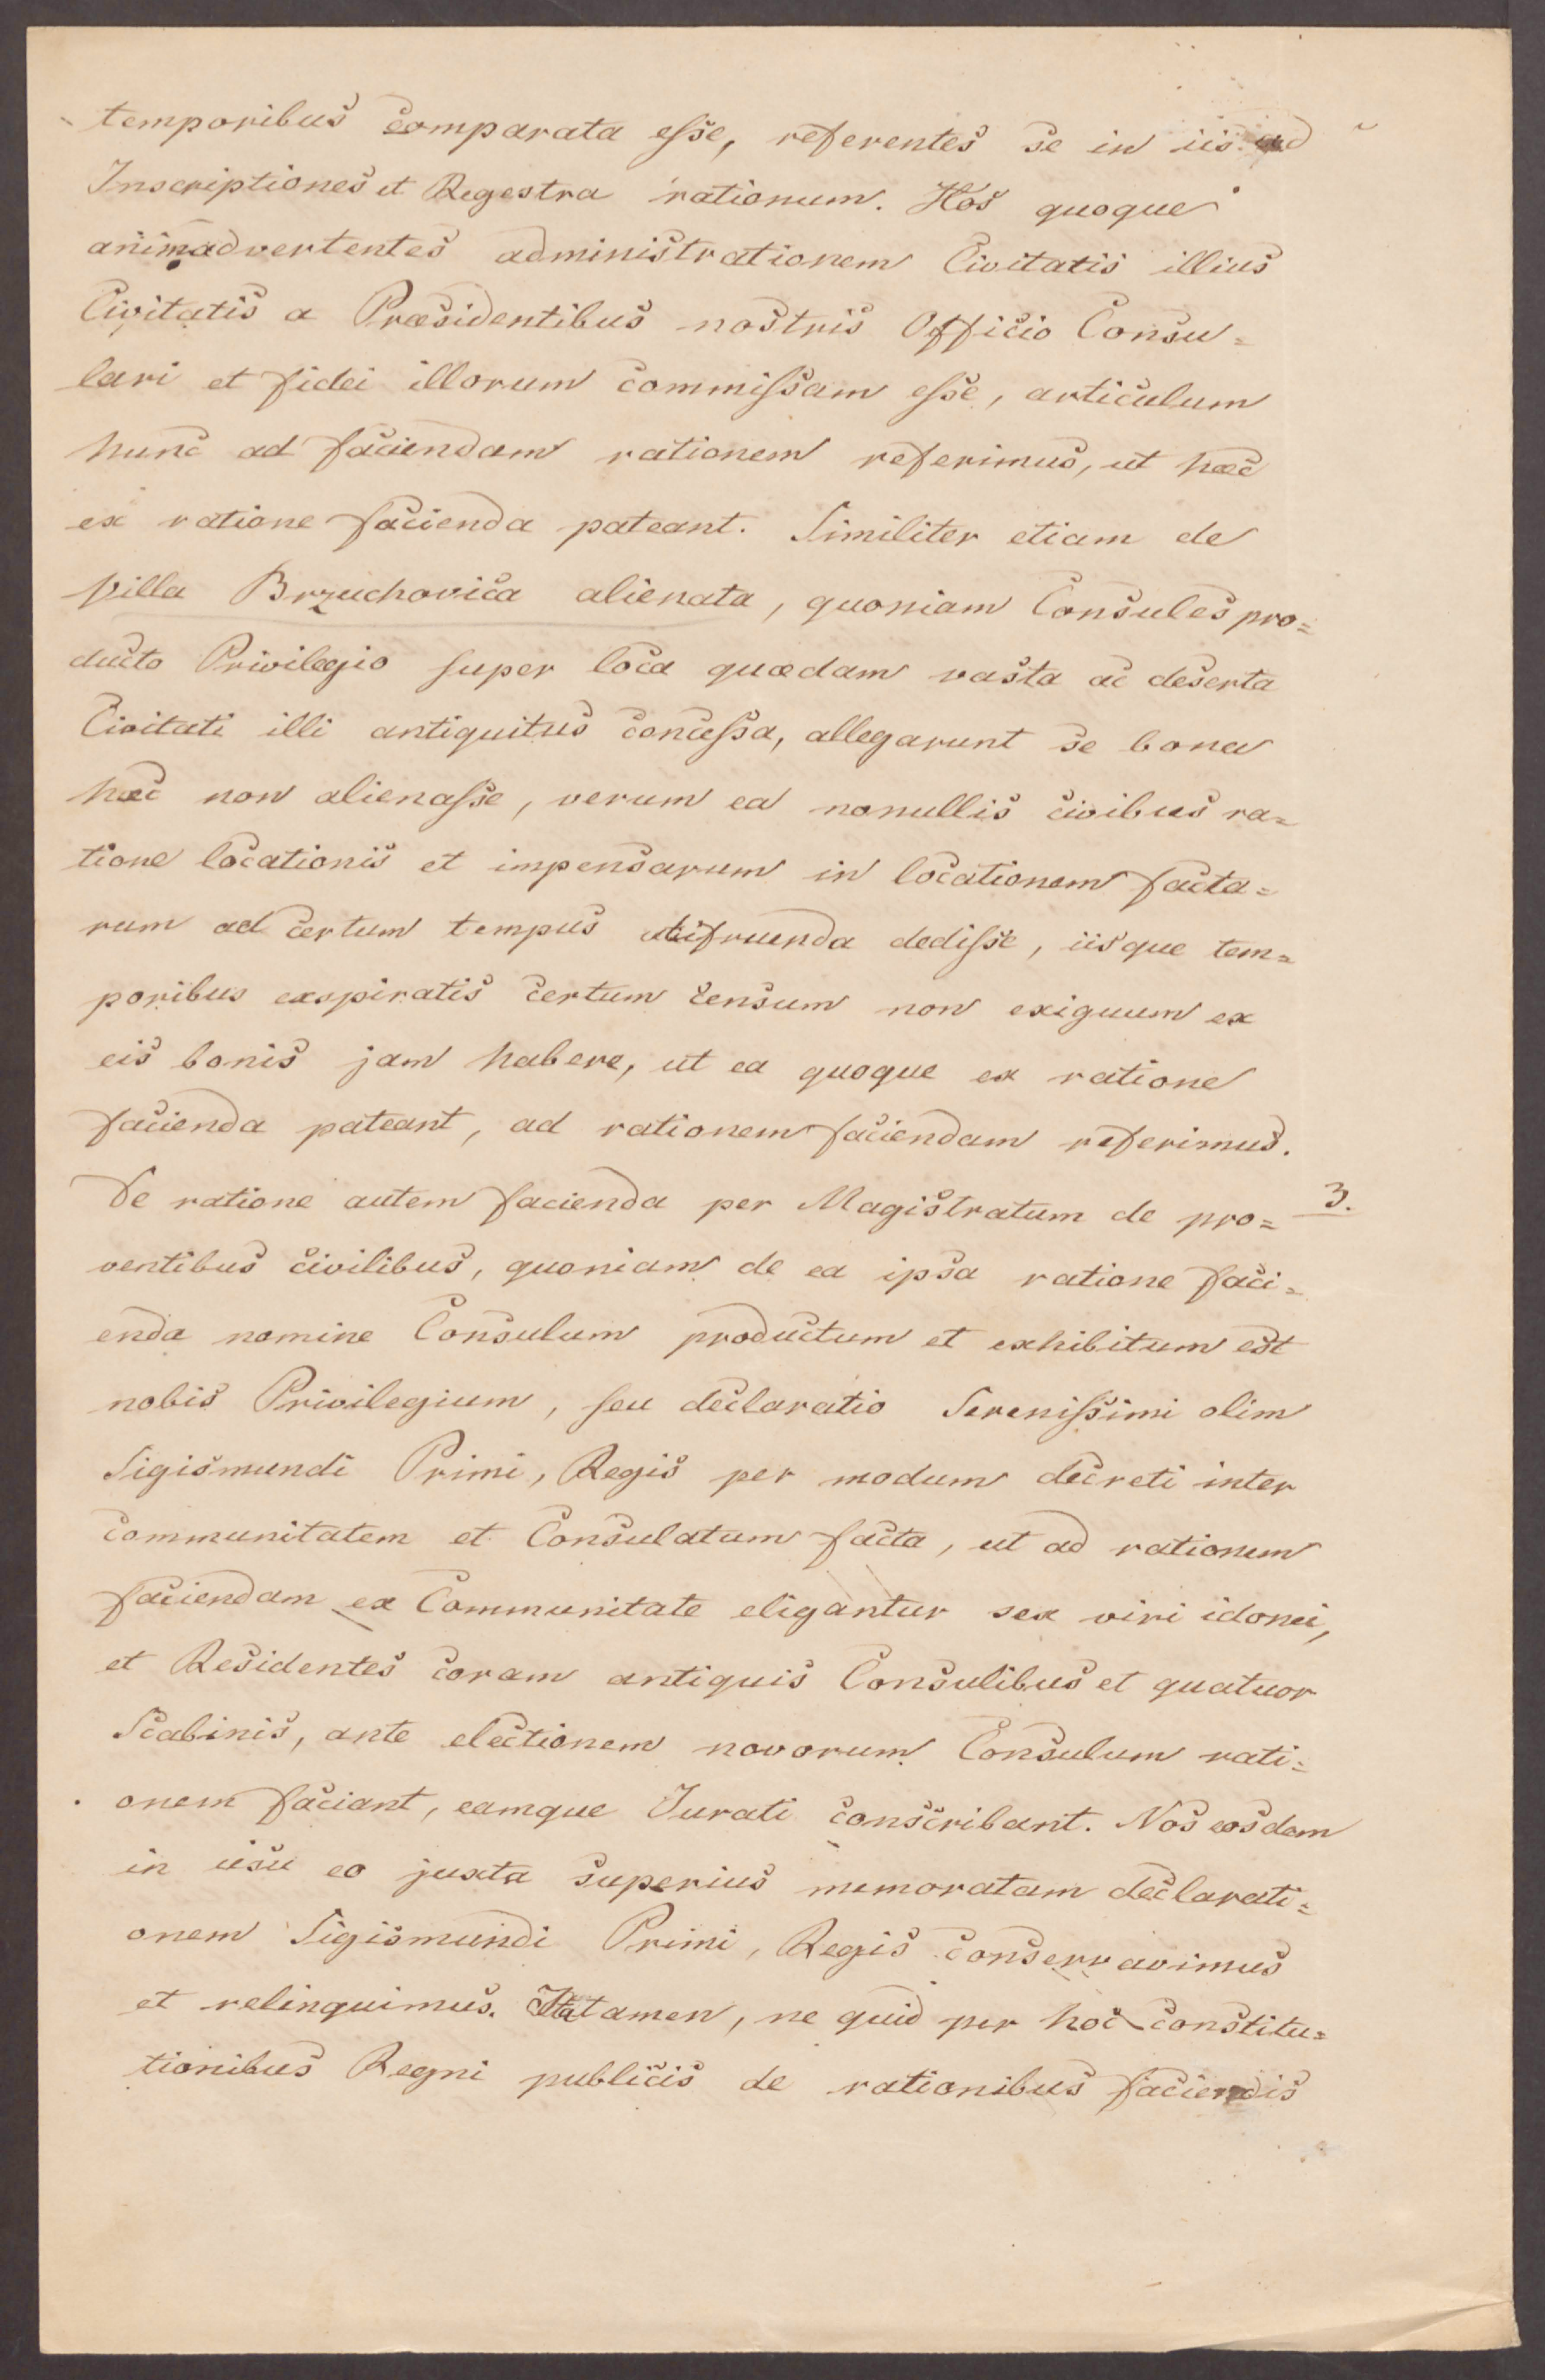 temporibus comparata esse, referentes se in iis ad
Inscriptiones et Regestra rationum. Hos quoque
animadvertentes administrationem Civitatis illius
Civitatis a Præsidentibus nostris Officio Consu=
lari et fidei illorum commissam esse, articulum
hunc ad faciendam rationem referimus, ut hæc
ex ratione facienda pateant. Similiter etiam de
villa Brzuchovica alienata, quoniam Consules pro=
ducto Privilegio super loca quædam vasta ac deserta
Civitati illi antiquitus concessa, allegarunt se bona
hæc non alienasse, verum ea nonullis civibus ra=
tione locationis et impensarum in locationem facta=
rum ad certum tempus utifruenda dedisse, iisque tem=
poribus exspiratis certum censum non exiguum ex
eis bonis jam habere, ut ea quoque ex ratione
facienda pateant, ad rationem faciendam referimus.
De ratione autem facienda per Magistratum de pro= 3.
ventibus civilibus, quoniam de ea ipsa ratione faci=
enda nomine Consulum productum et exhibitum est
nobis Privilegium, seu declaratio Serenissimi olim
Sigismundi Primi, Regis per modum decreti inter
communitatem et Consulatum facta, ut ad rationem
faciendam ex Communitate eligantur sex viri idonei,
et Residentes coram antiquis Consulibus et quatuor
Scabinis, ante electionem novorum Consulum rati=
onem faciant, eamque Jurati conscribant. Nos eosdem
in usu eo juxta superius memoratam declarati=
onem Sigismundi Primi, Regis conservavimus
et relinquimus. Ita tamen, ne quid per hoc constitu=
tionibus Regni publicis de rationibus faciendis